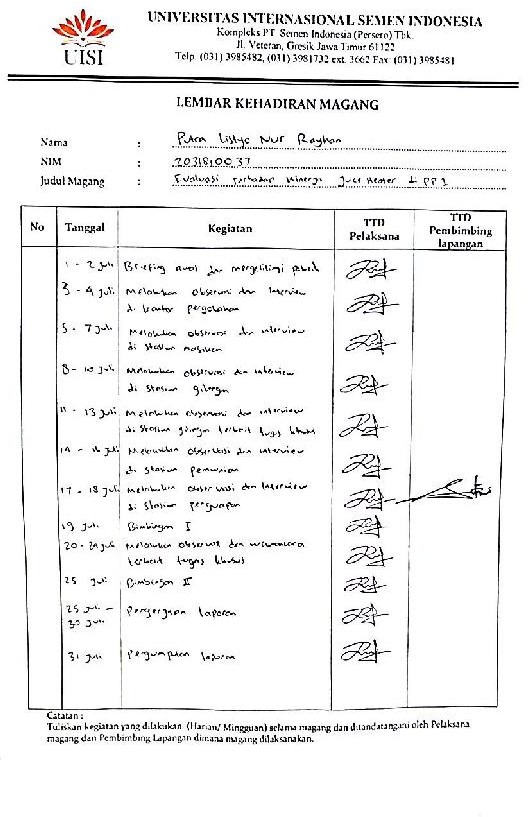 UISI
UNIVERSITAS INTERNASIONAL SEMEN INDONESIA
Kompleks PT. Semen Indonesia (Persero) Tbk.
Jl. Veteran, Gresik Jawa Timur 61122
Telp. (031) 3985482, (031) 3981732 ext. 3662 Fax: (031) 3985481
LEMBAR KEHADIRAN MAGANG
Nama : Putra Listyo Nur Rayhan
NIM : 2031810037
Judul Magang : Evaluasi terhadap Kinerja Juice Heater I PP 1
No Tanggal Kegiatan TTD Pelaksana TTD Pembimbing lapangan
1 - 2 juli Briefing awal dan mengelilingi pabrik
3 - 4 juli Melakukan observasi dan Interview
di kantor pengolahan
5 - 7 juli Melakukan observasi dan interview
di stasiun
8 - 10 juli Melakukan observasi dan interview
di stasiun gilingan
11 - 13 juli Melakukan observasi dan interview
di stasiun gilingan terkait tugas khusus
14 - 16 juli Melakukan observasi dan interview
di stasiun pemurnian
17 - 18 juli Melakukan observasi dan Interview
di stasiun penguapan
19 juli Bimbingan I
20 - 24 juli Melakukan observasi dan wawancara
terkait tugas khusus
25 juli Bimbingan II
25 juli - Pengerjaan laporan
30 juli
31 juli Pengumpulan laporan
Catatan :
Tuliskan kegiatan yang dilakukan (Harian/ Mingguan) selama magang dan ditandatangani oleh Pelaksana
magang dan Pembimbing Lapangan dimana magang dilaksanakan.